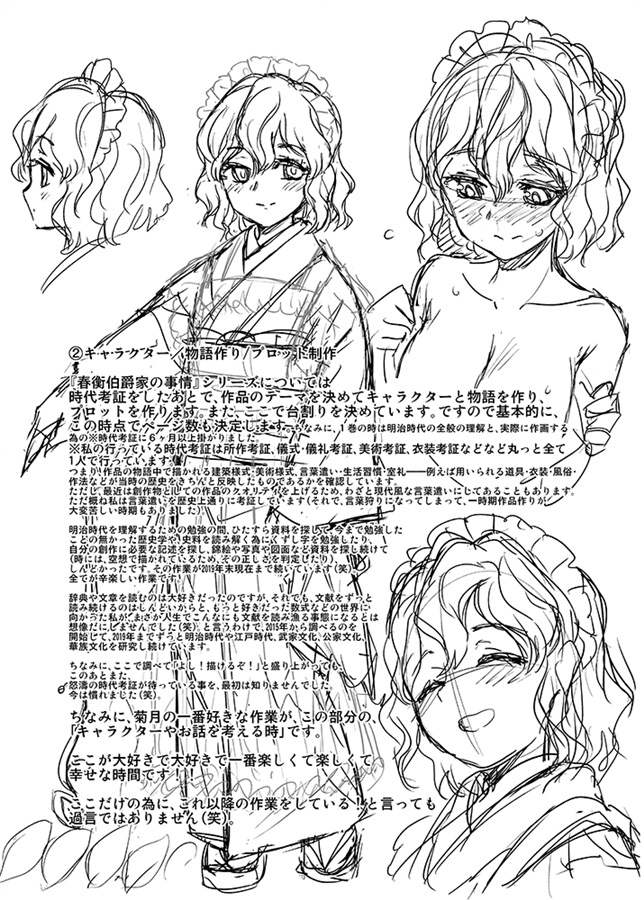 ②キャラクター/物語作り/プロット制作
『春衡伯爵家の事情』シリーズについては
時代考証をしたあとで、作品のテーマを決めてキャラクターと物語を作り、
プロットを作ります。また、ここで台割りを決めています。ですので基本的に、
この時点でページ数も決定します。ちなみに、1巻の時は明治時代の全般の理解と、実際に作画する
為の※時代考証に6ヶ月以上掛かりました。
※私の行っている時代考証は所作考証、儀式・儀礼考証、美術考証、衣装考証などなど丸っと全て
1人で行っています。
つまり!作品の物語中で描かれる建築様式・美術様式、言葉遣い・生活習慣・室礼――例えば用いられる道具・衣装・風俗・
作法などが当時の歴史をきちんと反映したものであるかを確認しています。
ただし、最近は創作物としての作品のクオリティを上げるため、わざと現代風な言葉遣いにしてあることもあります。
ただ概ね私は言葉遣いを歴史上通りに考証しています(それで、言葉狩りになってしまって、一時期作品作りが
大変苦しい時期もありました)
明治時代を理解するための勉強の間、ひたすら資料を探して、今まで勉強した
ことの無かった歴史学や、史料を読み解く為にくずし字を勉強したり、
自分の創作に必要な記述を探し、錦絵や写真や図面など資料を探し続けて
(時には、空想で描かれているため、その正しさを判定したり)、
しんどかったです。その作業が2019年末現在まで続いています(笑)
全てが辛楽しい作業です!
辞典や文章を読むのは大好きだったのですが、それでも、文献をずっと
読み続けるのはしんどいからと、もっと好きだった数式などの世界に
向かった私が、まさか人生でこんなにも文献を読み漁る事態になるとは
想像だにしませんでした(笑)。と言うわけで、2015年から調べるのを
開始して、2019年までずっと明治時代や江戸時代、武家文化、公家文化、
華族文化を研究し続けています。
ちなみに、ここで調べて「よし!描けるぞ!」と盛り上がっても、
このあとまた、
怒濤の時代考証が待っている事を、最初は知りませんでした。
今は慣れました(笑)
ちなみに、菊月の一番好きな作業が、この部分の、
「キャラクターやお話を考える時」です。
ここが大好きで大好きで一番楽しくて楽しくて
幸せな時間です!!
ここだけの為に、これ以降の作業をしている!と言っても
過言ではありません(笑)。